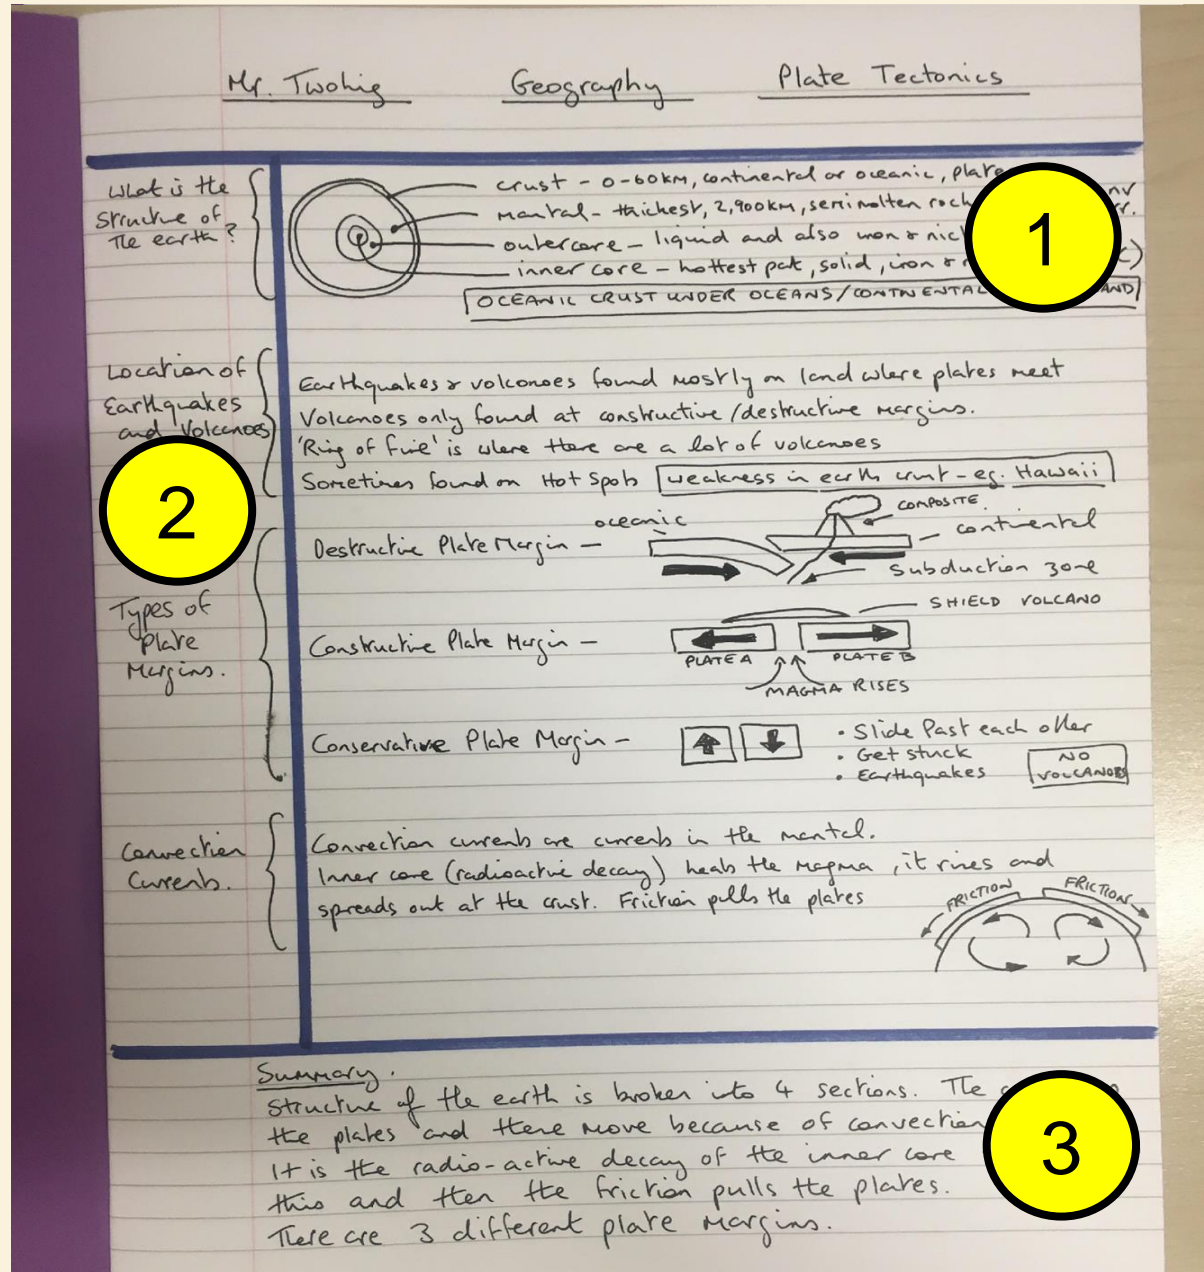 Mr. Twohig Geography Plate Tectonics
What is the
Structure of
The earth?
crust - 0-60km, continental or oceanic, plate
mantal - thickest, 2,900km, semi molten rock
outercore - liquid and also iron & nic
inner core - hottest part, solid, iron &
OCEANIC CRUST UNDER OCEANS/CONTINENTAL AND
1
Location of
Earthquakes
and Volcanoes
Earthquakes & volcanoes found mostly on land where plates meet
Volcanoes only found at constructive/destructive margins.
'Ring of fire' is where there are a lot of volcanoes
Sometimes found on Hot Spots weakness in earth crust - eg. Hawaii
2
Types of
Plate
Margins.
Destructive Plate Margin -
oceanic
COMPOSITE
continental
Subduction zone
Constructive Plate Margin -
SHIELD VOLCANO
PLATE A PLATE B
MAGMA RISES
Conservative Plate Margin -
• Slide Past each other
• Get stuck
• Earthquakes
NO
VOLCANOES
Convection
Currents.
Convection currents are currents in the mantel.
Inner core (radioactive decay) heats the magma, it rises and
spreads out at the crust. Friction pulls the plates
FRICTION FRICTION
Summary.
Structure of the earth is broken into 4 sections. The
the plates and these move because of convection
It is the radio-active decay of the inner core
this and then the friction pulls the plates.
There are 3 different plate margins.
3